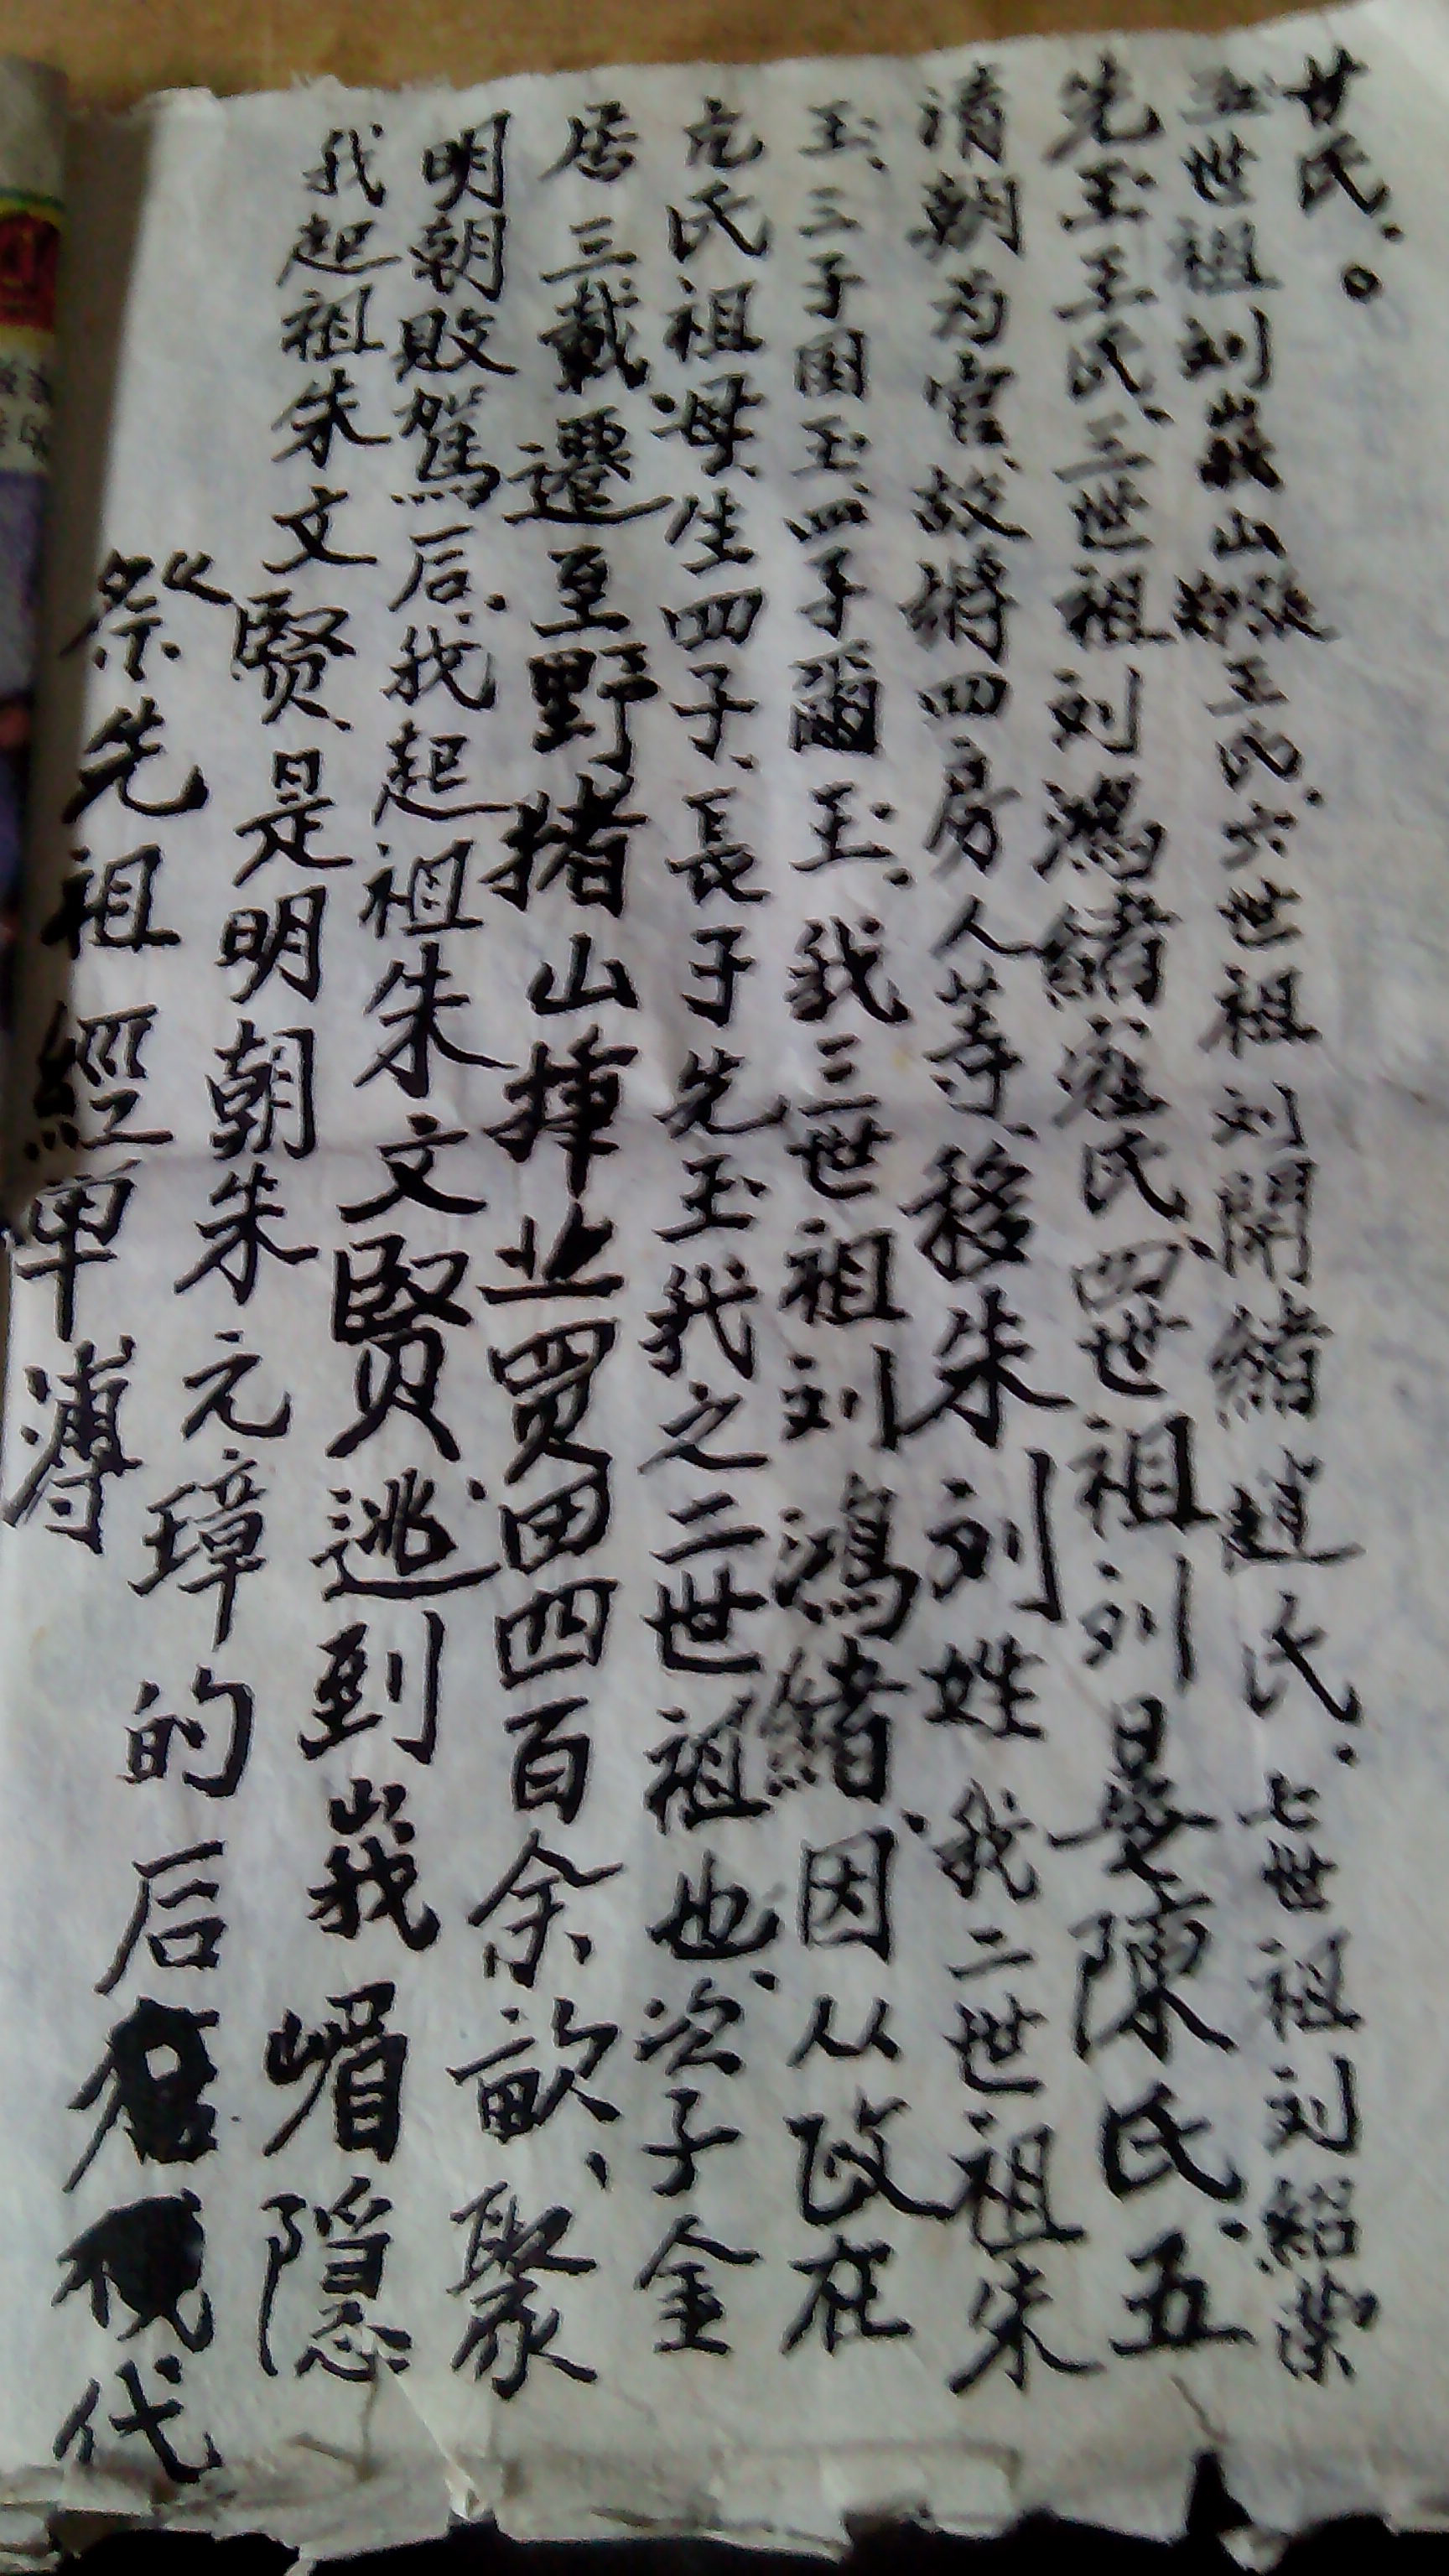 “祭先祖經单薄
我起祖朱文賢、是明朝朱元璋的后代
明朝敗駕后、我起祖朱文賢、逃到峩嵋隐
居三載遷至野猪山揷业買田四百余畝、聚
氏祖母、生四子、長子先玉我之二世祖也、次子金
玉、三子国玉、四子爾玉、我三世祖刘鴻緒、因从政在
清朝为官、故將四房人等、移朱刘姓、我二世祖朱
先玉王氏、三世祖刘鴻緒氏、四世祖刘陳氏、五
世祖刘峩山王氏、六世祖刘開緒趙氏、七世祖刘紹榮
甘氏、。